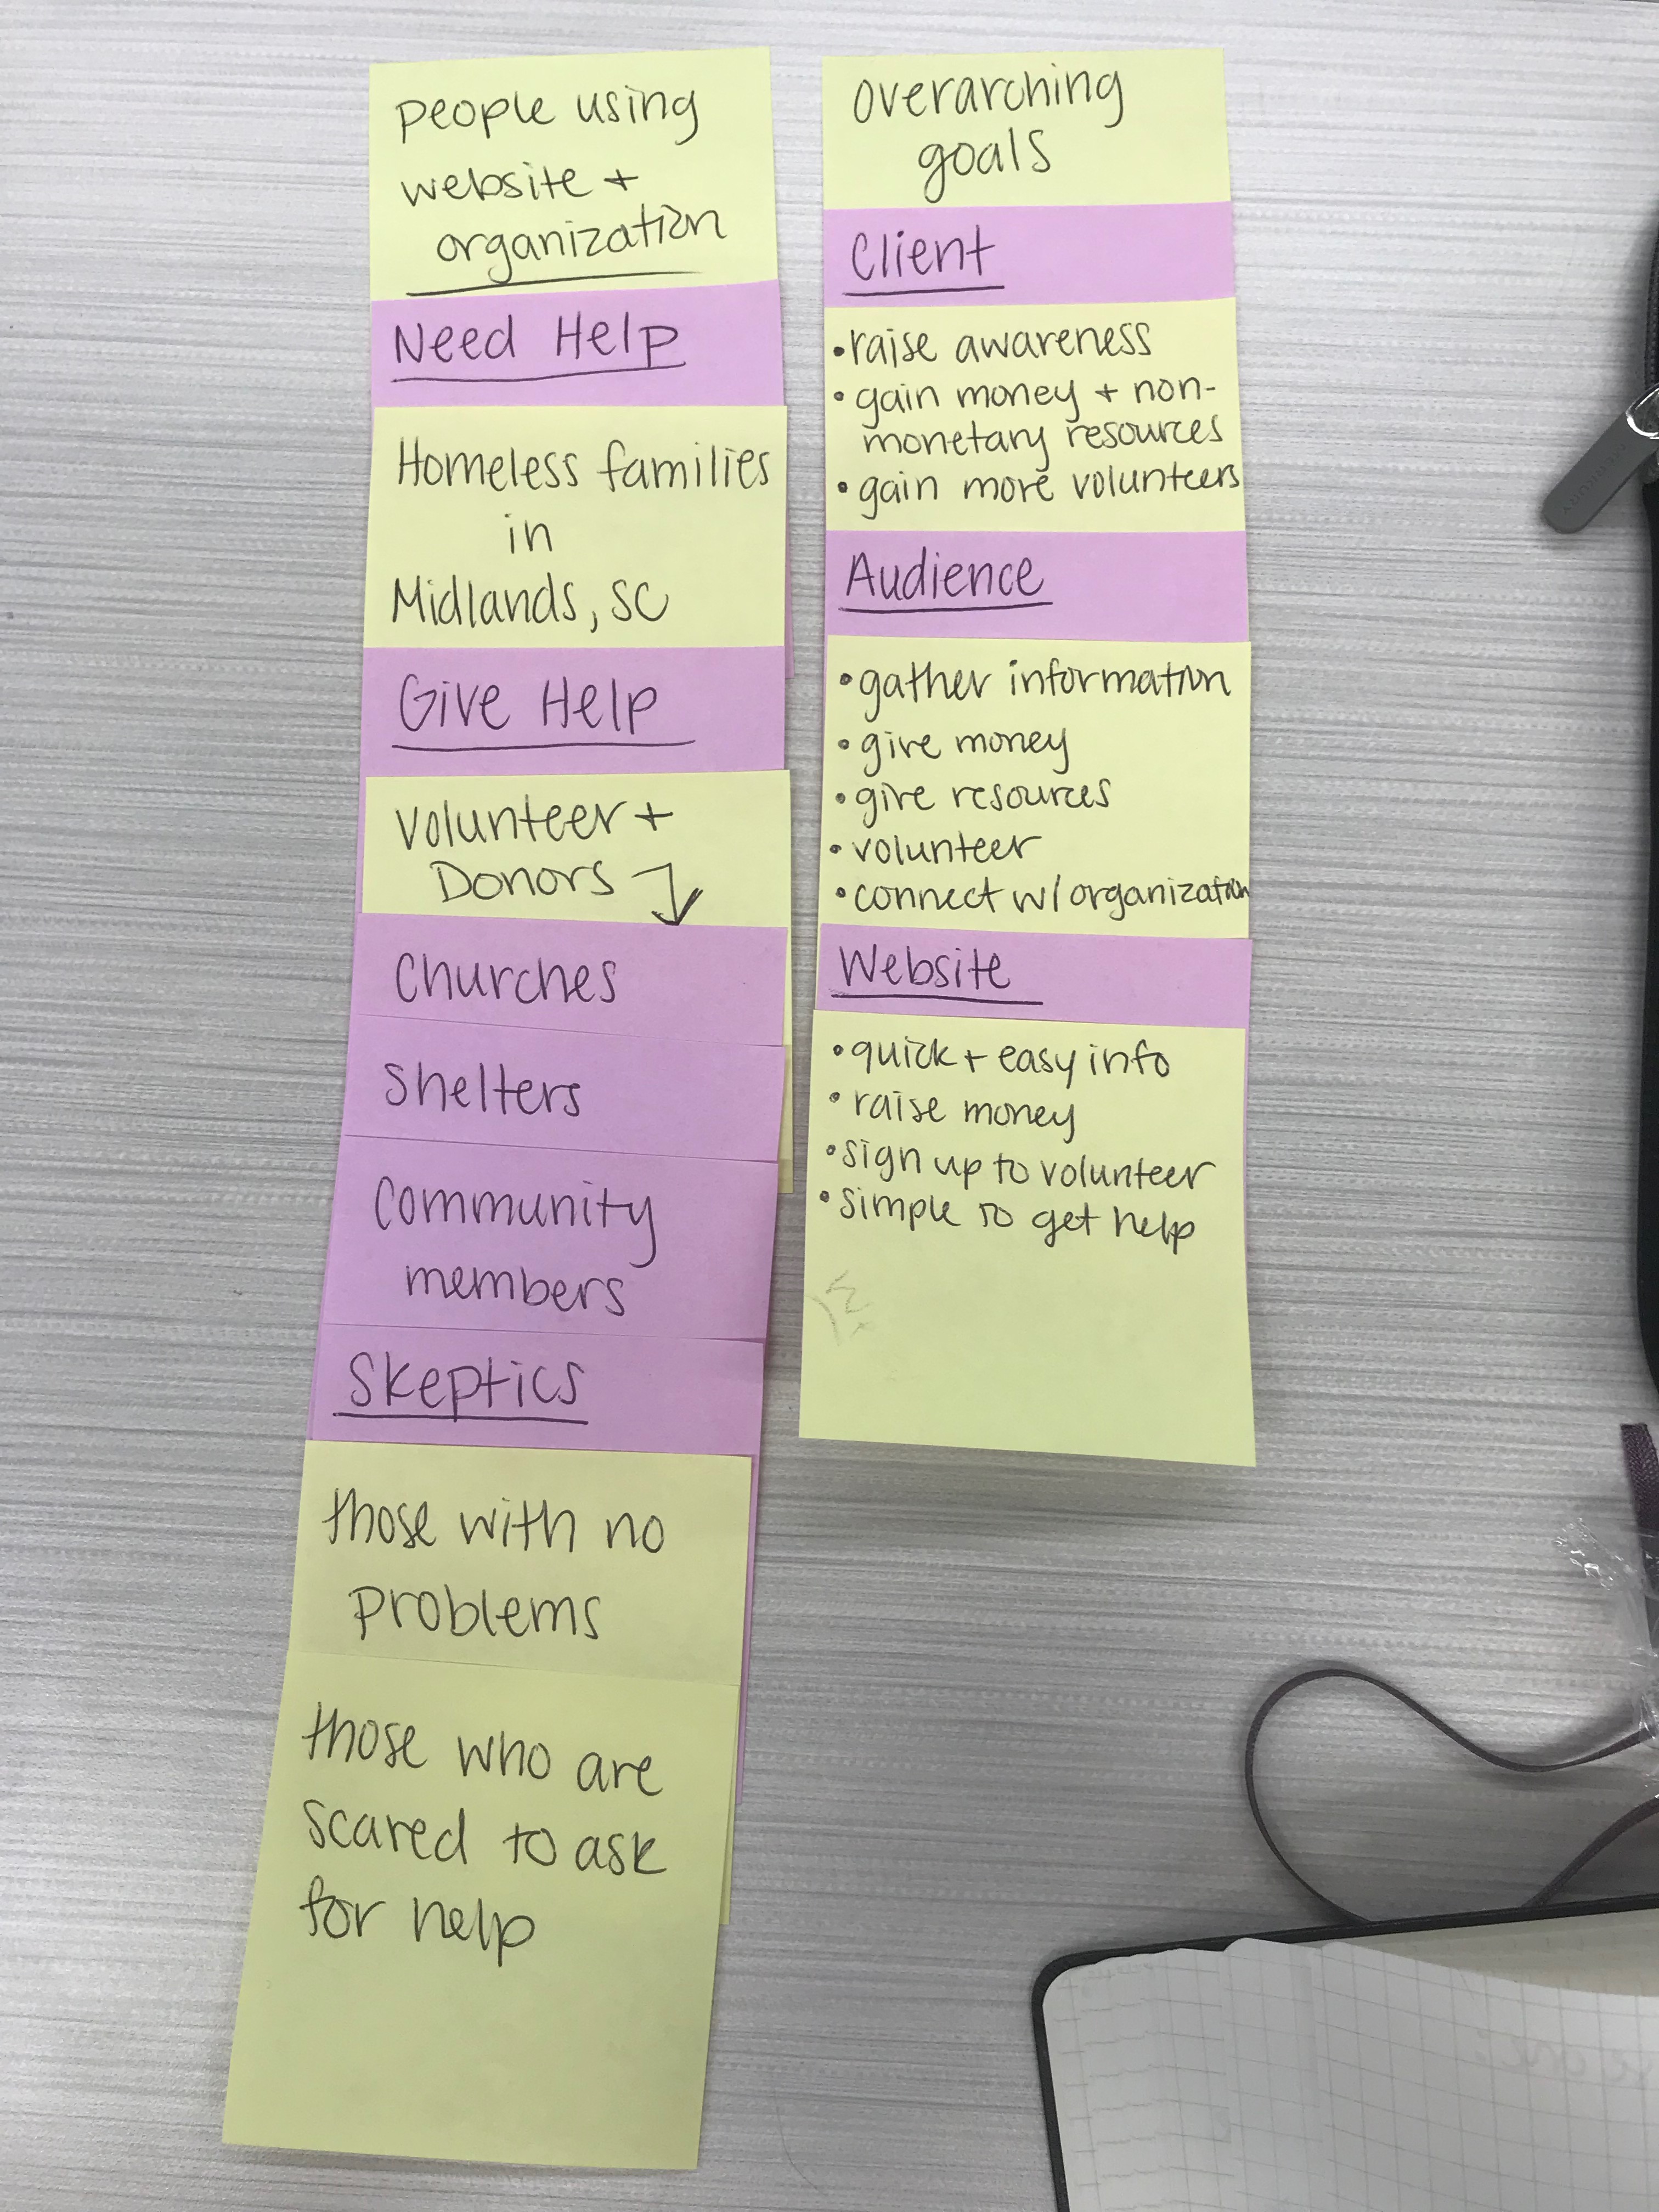 people using
website +
organization
Need Help
Homeless families
in
Midlands, SC
Give Help
Volunteer +
Donors
Churches
Shelters
Community
members
Skeptics
those with no
problems
those who are
scared to ask
for help
overarching
goals
Client
• raise awareness
• gain money + non-
monetary resources
• gain more volunteers
Audience
• gather information
• give money
• give resources
• volunteer
• connect w/ organization
Website
• quick + easy info
• raise money
• sign up to volunteer
• simple to get help